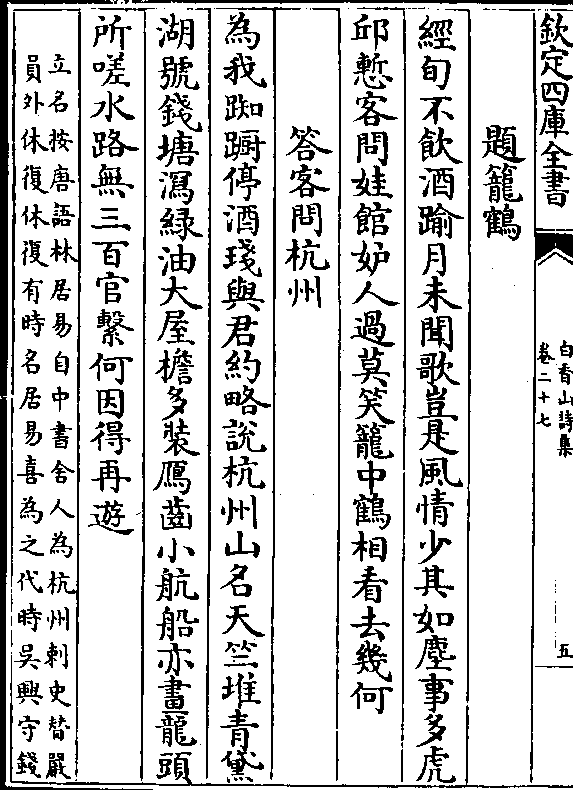 欽定四庫全書
白香山詩集
卷二十七
五
題籠鶴
經旬不飲酒踰月未聞歌豈是風情少其如塵事多虎
邱慙客問娃館妒人過莫笑籠中鶴相看去幾何
答客問杭州
為我踟蹰停酒琖與君約略說杭州山名天竺堆青黛
湖號錢塘瀉綠油大屋檐多裝鴈齒小航船亦畫龍頭
所嗟水路無三百官繫何因得再遊
立名按唐語林居易自中書舍人為杭州刺史替嚴
員外休復休復有時名居易喜為之代時吳興守錢